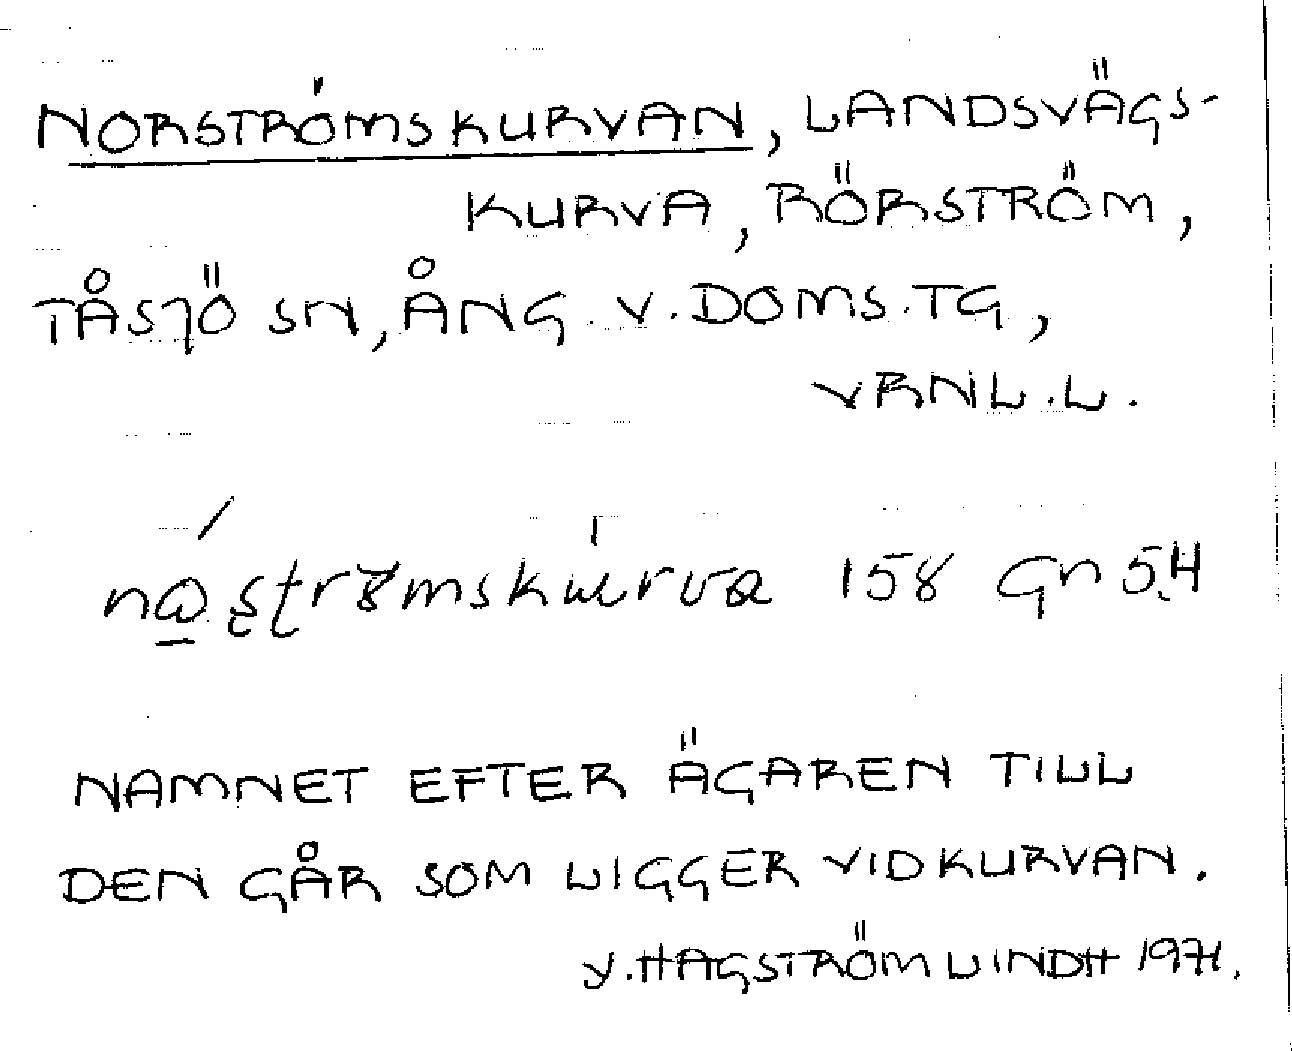 NORSTRÖMSKURVAN, LANDSVÄGS-
KURVA, RÖRSTRÖM,
TÅSJÖ SN, ÅNG. V. DOMS. TG,
VRNL. L.
158 Gn 5H
NAMNET EFTER ÄGAREN TILL
DEN GÅR SOM LIGGER VID KURVAN.
Y. HAGSTRÖM LINDH 1971.